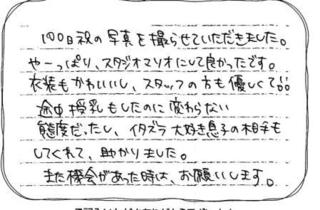 100日祝の写真を撮らせていただきました。
やーっぱり、スタジオマリオにして良かったです。
衣装もかわいいし、スタッフの方も優しくて!!
途中授乳もしたのに変わらない
態度だったし、イタズラ大好き息子の相手も
してくれて、助かりました。
また機会があった時は、お願いします。